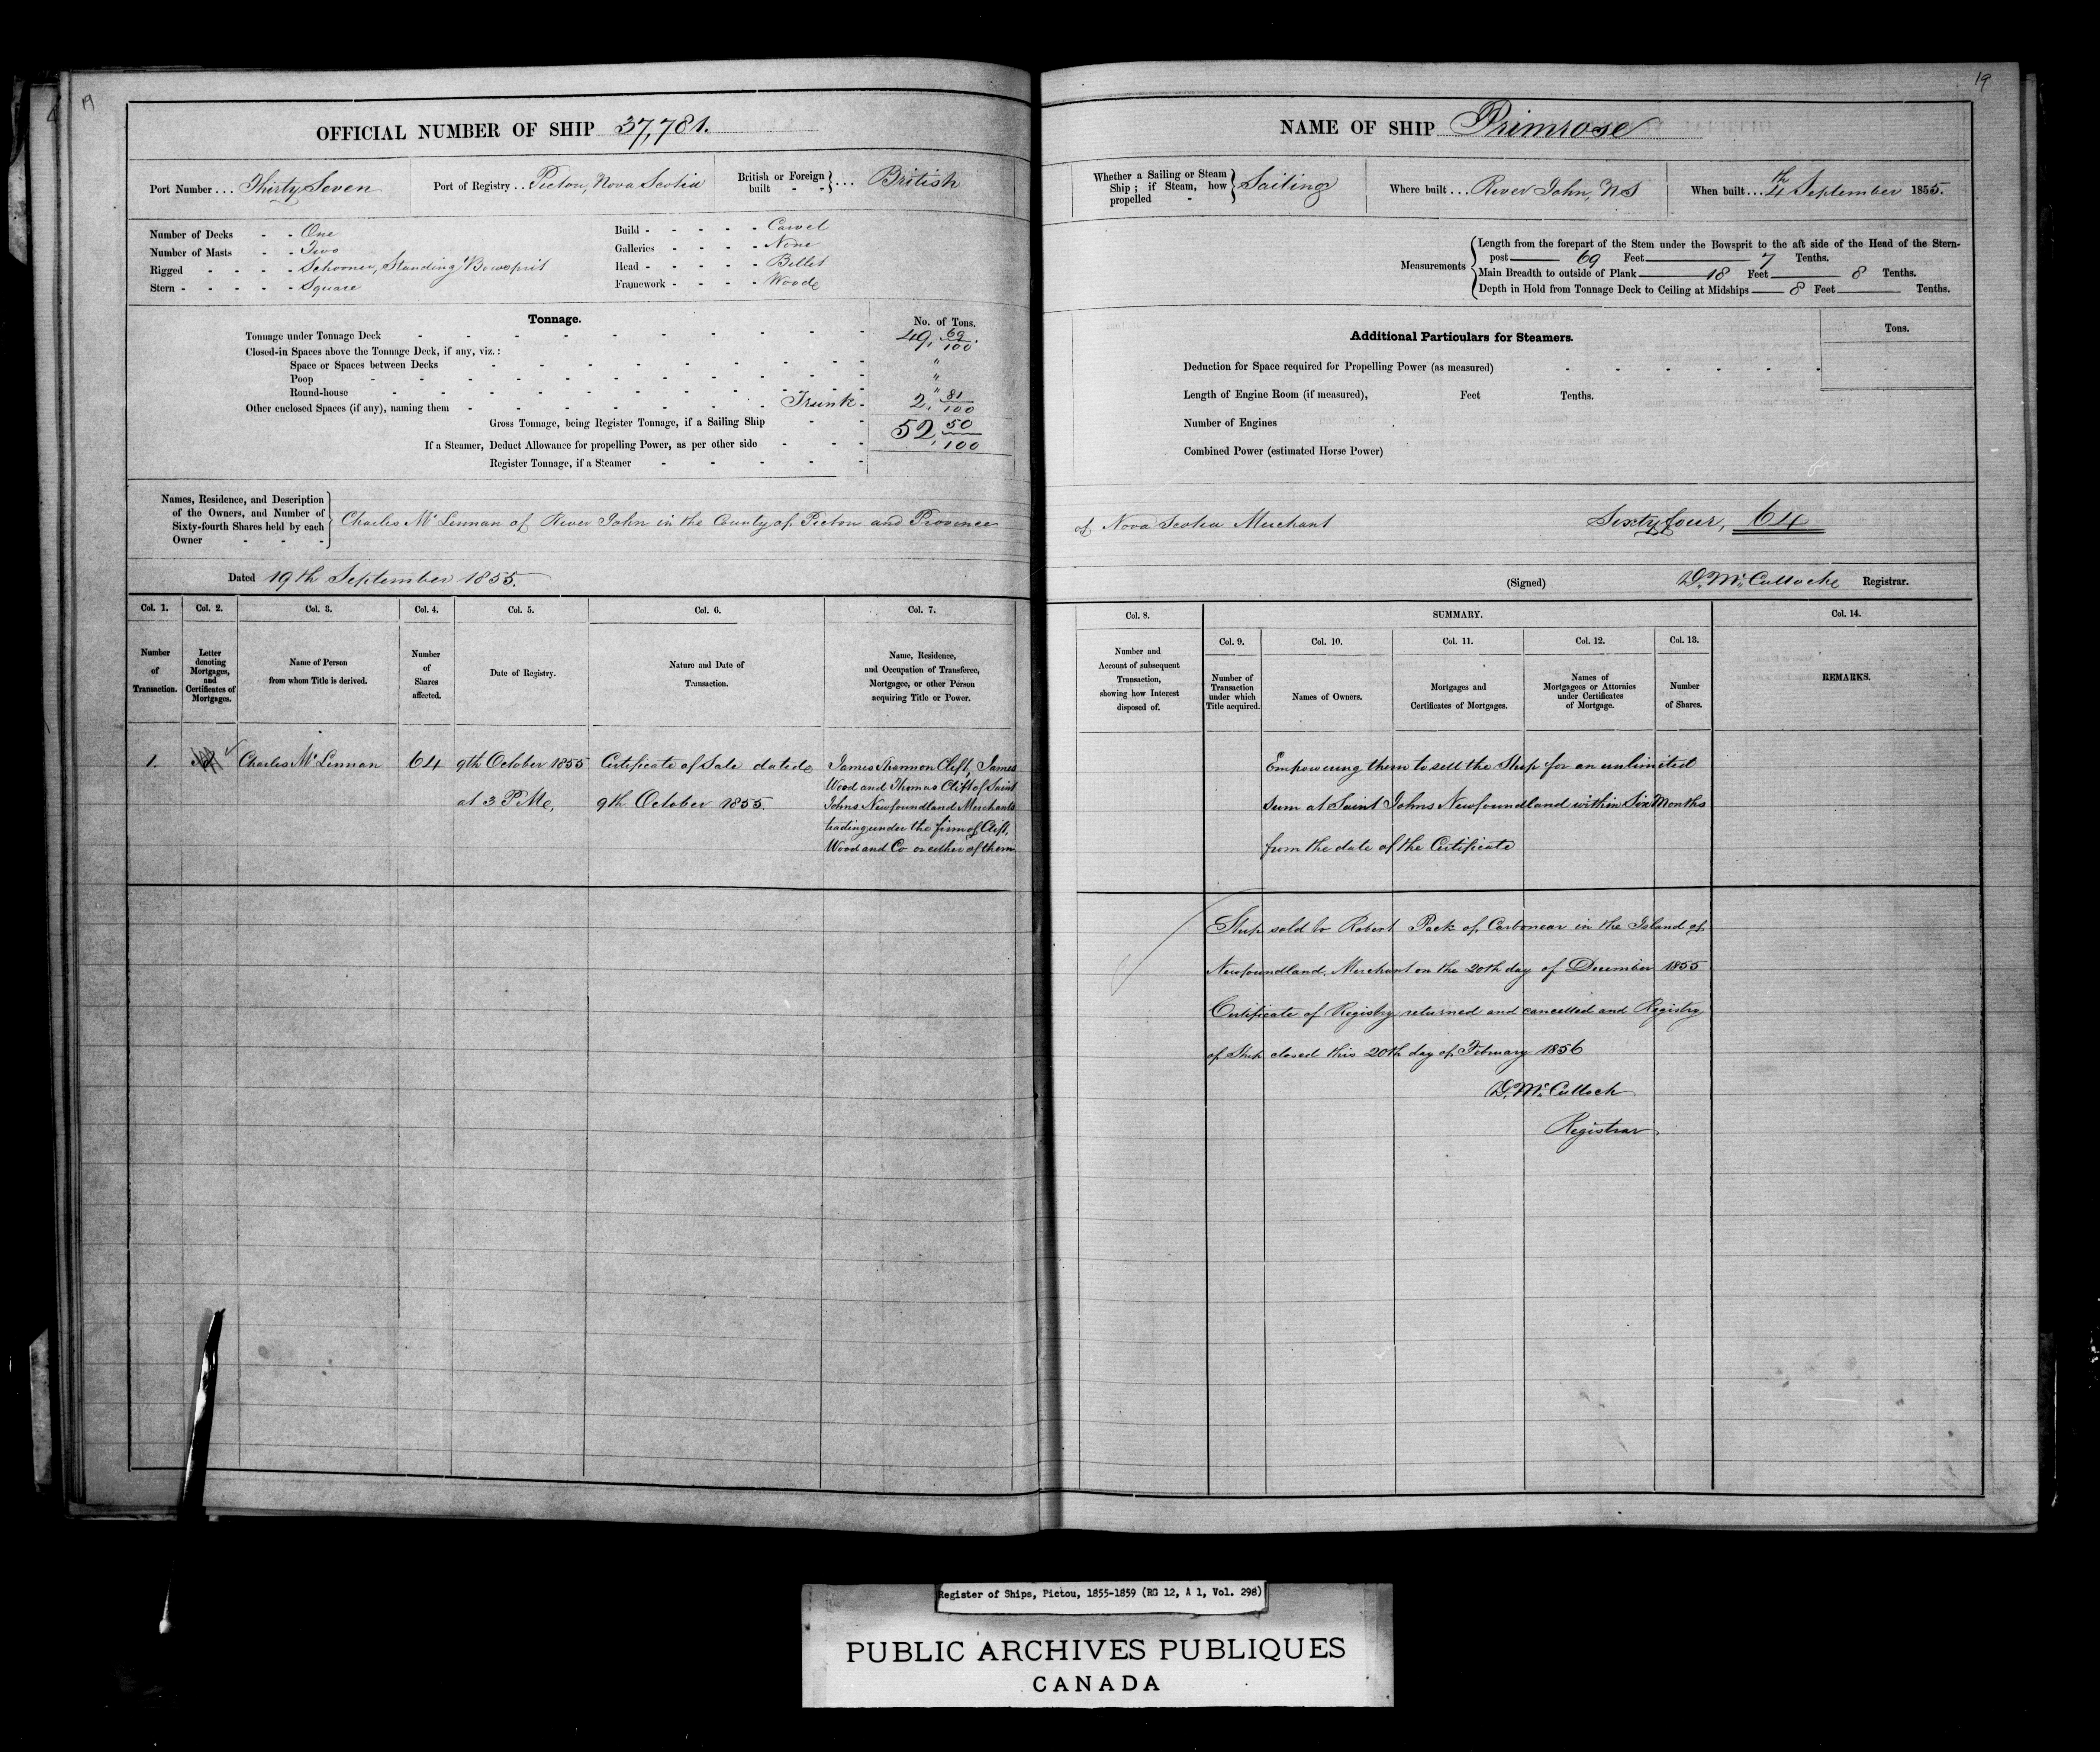 19
OFFICIAL NUMBER OF SHIP 37,781.
Port Number ... Thirty Seven
Port of Registry .. Pictou, Nova Scotia
British or Foreign built - - } ... British
Number of Decks - - One
Number of Masts - - Two
Rigged - - - - Schooner, Standing Bowsprit
Stern - - - - - Square
Build - - - - - Carvel
Galleries - - - - None
Head - - - - - Billet
Framework - - - - Wood
Tonnage.
No. of Tons.
Tonnage under Tonnage Deck 49, 69/100.
Closed-in Spaces above the Tonnage Deck, if any, viz.:
Space or Spaces between Decks "
Poop "
Round-house "
Other enclosed Spaces (if any), naming them - Trunk - 2, 81/100
Gross Tonnage, being Register Tonnage, if a Sailing Ship 52, 50/100
If a Steamer, Deduct Allowance for propelling Power, as per other side
Register Tonnage, if a Steamer
Names, Residence, and Description
of the Owners, and Number of
Sixty-fourth Shares held by each
Owner - - -
Charles McLennan of River John in the County of Pictou and Province
Dated 19th September 1855.
Col. 1. Col. 2. Col. 3. Col. 4. Col. 5. Col. 6. Col. 7.
Number of Transaction.
Letter denoting Mortgages, and Certificates of Mortgages.
Name of Person from whom Title is derived.
Number of Shares affected.
Date of Registry.
Nature and Date of Transaction.
Name, Residence, and Occupation of Transferee, Mortgagee, or other Person acquiring Title or Power.
1. Charles McLennan 64 9th October 1855 Certificate of Sale dated
at 3 P.M. 9th October 1855.
James Shannon Clift, James
Wood and Thomas Clift of Saint
Johns Newfoundland Merchants
trading under the firm of Clift,
Wood and Co or either of them
19
NAME OF SHIP Primrose
Whether a Sailing or Steam Ship; if Steam, how propelled - } Sailing
Where built ... River John, NS
When built ... 4th September 1855.
Measurements
Length from the forepart of the Stem under the Bowsprit to the aft side of the Head of the Stern-
post 69 Feet 7 Tenths.
Main Breadth to outside of Plank 18 Feet 8 Tenths.
Depth in Hold from Tonnage Deck to Ceiling at Midships 8 Feet Tenths.
Additional Particulars for Steamers.
Tons.
Deduction for Space required for Propelling Power (as measured)
Length of Engine Room (if measured), Feet Tenths.
Number of Engines
Combined Power (estimated Horse Power)
of Nova Scotia Merchant Sixty four, 64
(Signed) D. McCulloch Registrar.
Col. 8.
SUMMARY.
Col. 14.
Col. 9. Col. 10. Col. 11. Col. 12. Col. 13.
Number and Account of subsequent Transaction, showing how Interest disposed of.
Number of Transaction under which Title acquired.
Names of Owners.
Mortgages and Certificates of Mortgages.
Names of Mortgagees or Attornies under Certificates of Mortgage.
Number of Shares.
REMARKS.
Empowering them to sell the Ship for an unlimited
sum at Saint Johns Newfoundland within Six Months
from the date of the Certificate
Ship sold to Robert Pack of Carbonear in the Island of
Newfoundland, Merchant on the 20th day of December 1855
Certificate of Registry returned and cancelled and Registry
of Ship closed this 20th day of February 1856
D. McCulloch
Registrar
Register of Ships, Pictou, 1855-1859 (RG 12, A 1, Vol. 298)
PUBLIC ARCHIVES PUBLIQUES
CANADA